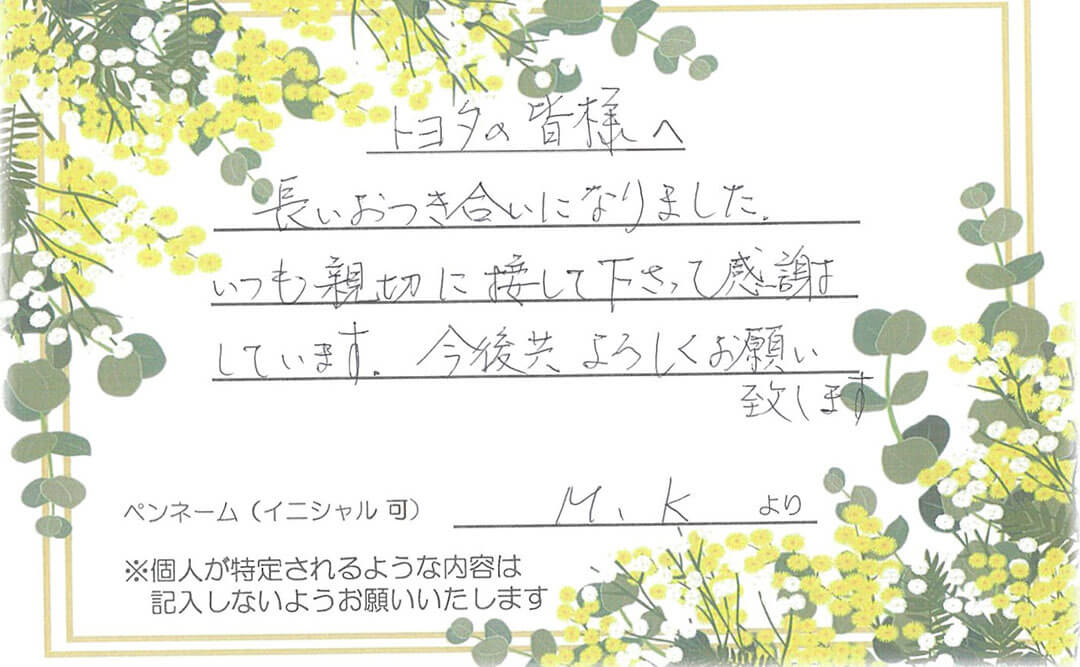 トヨタの皆様へ
長いおつき合いになりました。
いつも親切に接して下さって感謝
しています。今後共よろしくお願い
致します
ペンネーム（イニシャル 可） M、K より
※個人が特定されるような内容は
記入しないようお願いいたします